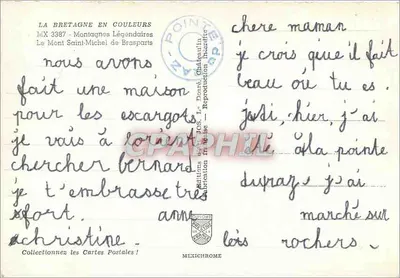 LA BRETAGNE EN COULEURS
MX 3387 - Montagnes Légendaires
Le Mont Saint-Michel de Brasparts
POINTE DU RAZ
chere maman
je crois que il fait
beau où tu es.
jedi, hier, j'ai
été à la pointe
duraz j'ai
marché sur
les rochers.
nous avons
fait une maison
pour les escargots
je vais à lorient
chercher bernard
je t'embrasse tres
fort. anne
christine.
CPARAMA
Collectionnez les Cartes Postales !
MEXICHROME